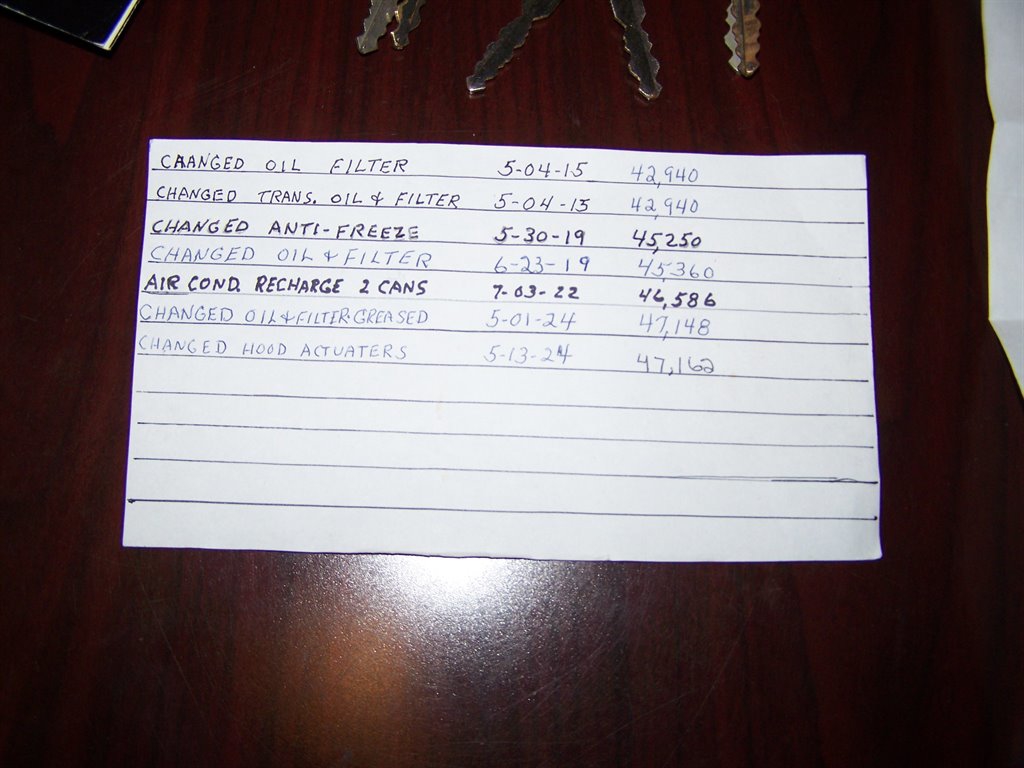 CHANGED OIL FILTER 5-04-15 42,940
CHANGED TRANS. OIL & FILTER 5-04-15 42,940
CHANGED ANTI-FREEZE 5-30-19 45,250
CHANGED OIL & FILTER 6-23-19 45,360
AIR COND. RECHARGE 2 CANS 7-03-22 46,586
CHANGED OIL & FILTER-GREASED 5-01-24 47,148
CHANGED HOOD ACTUATERS 5-13-24 47,162